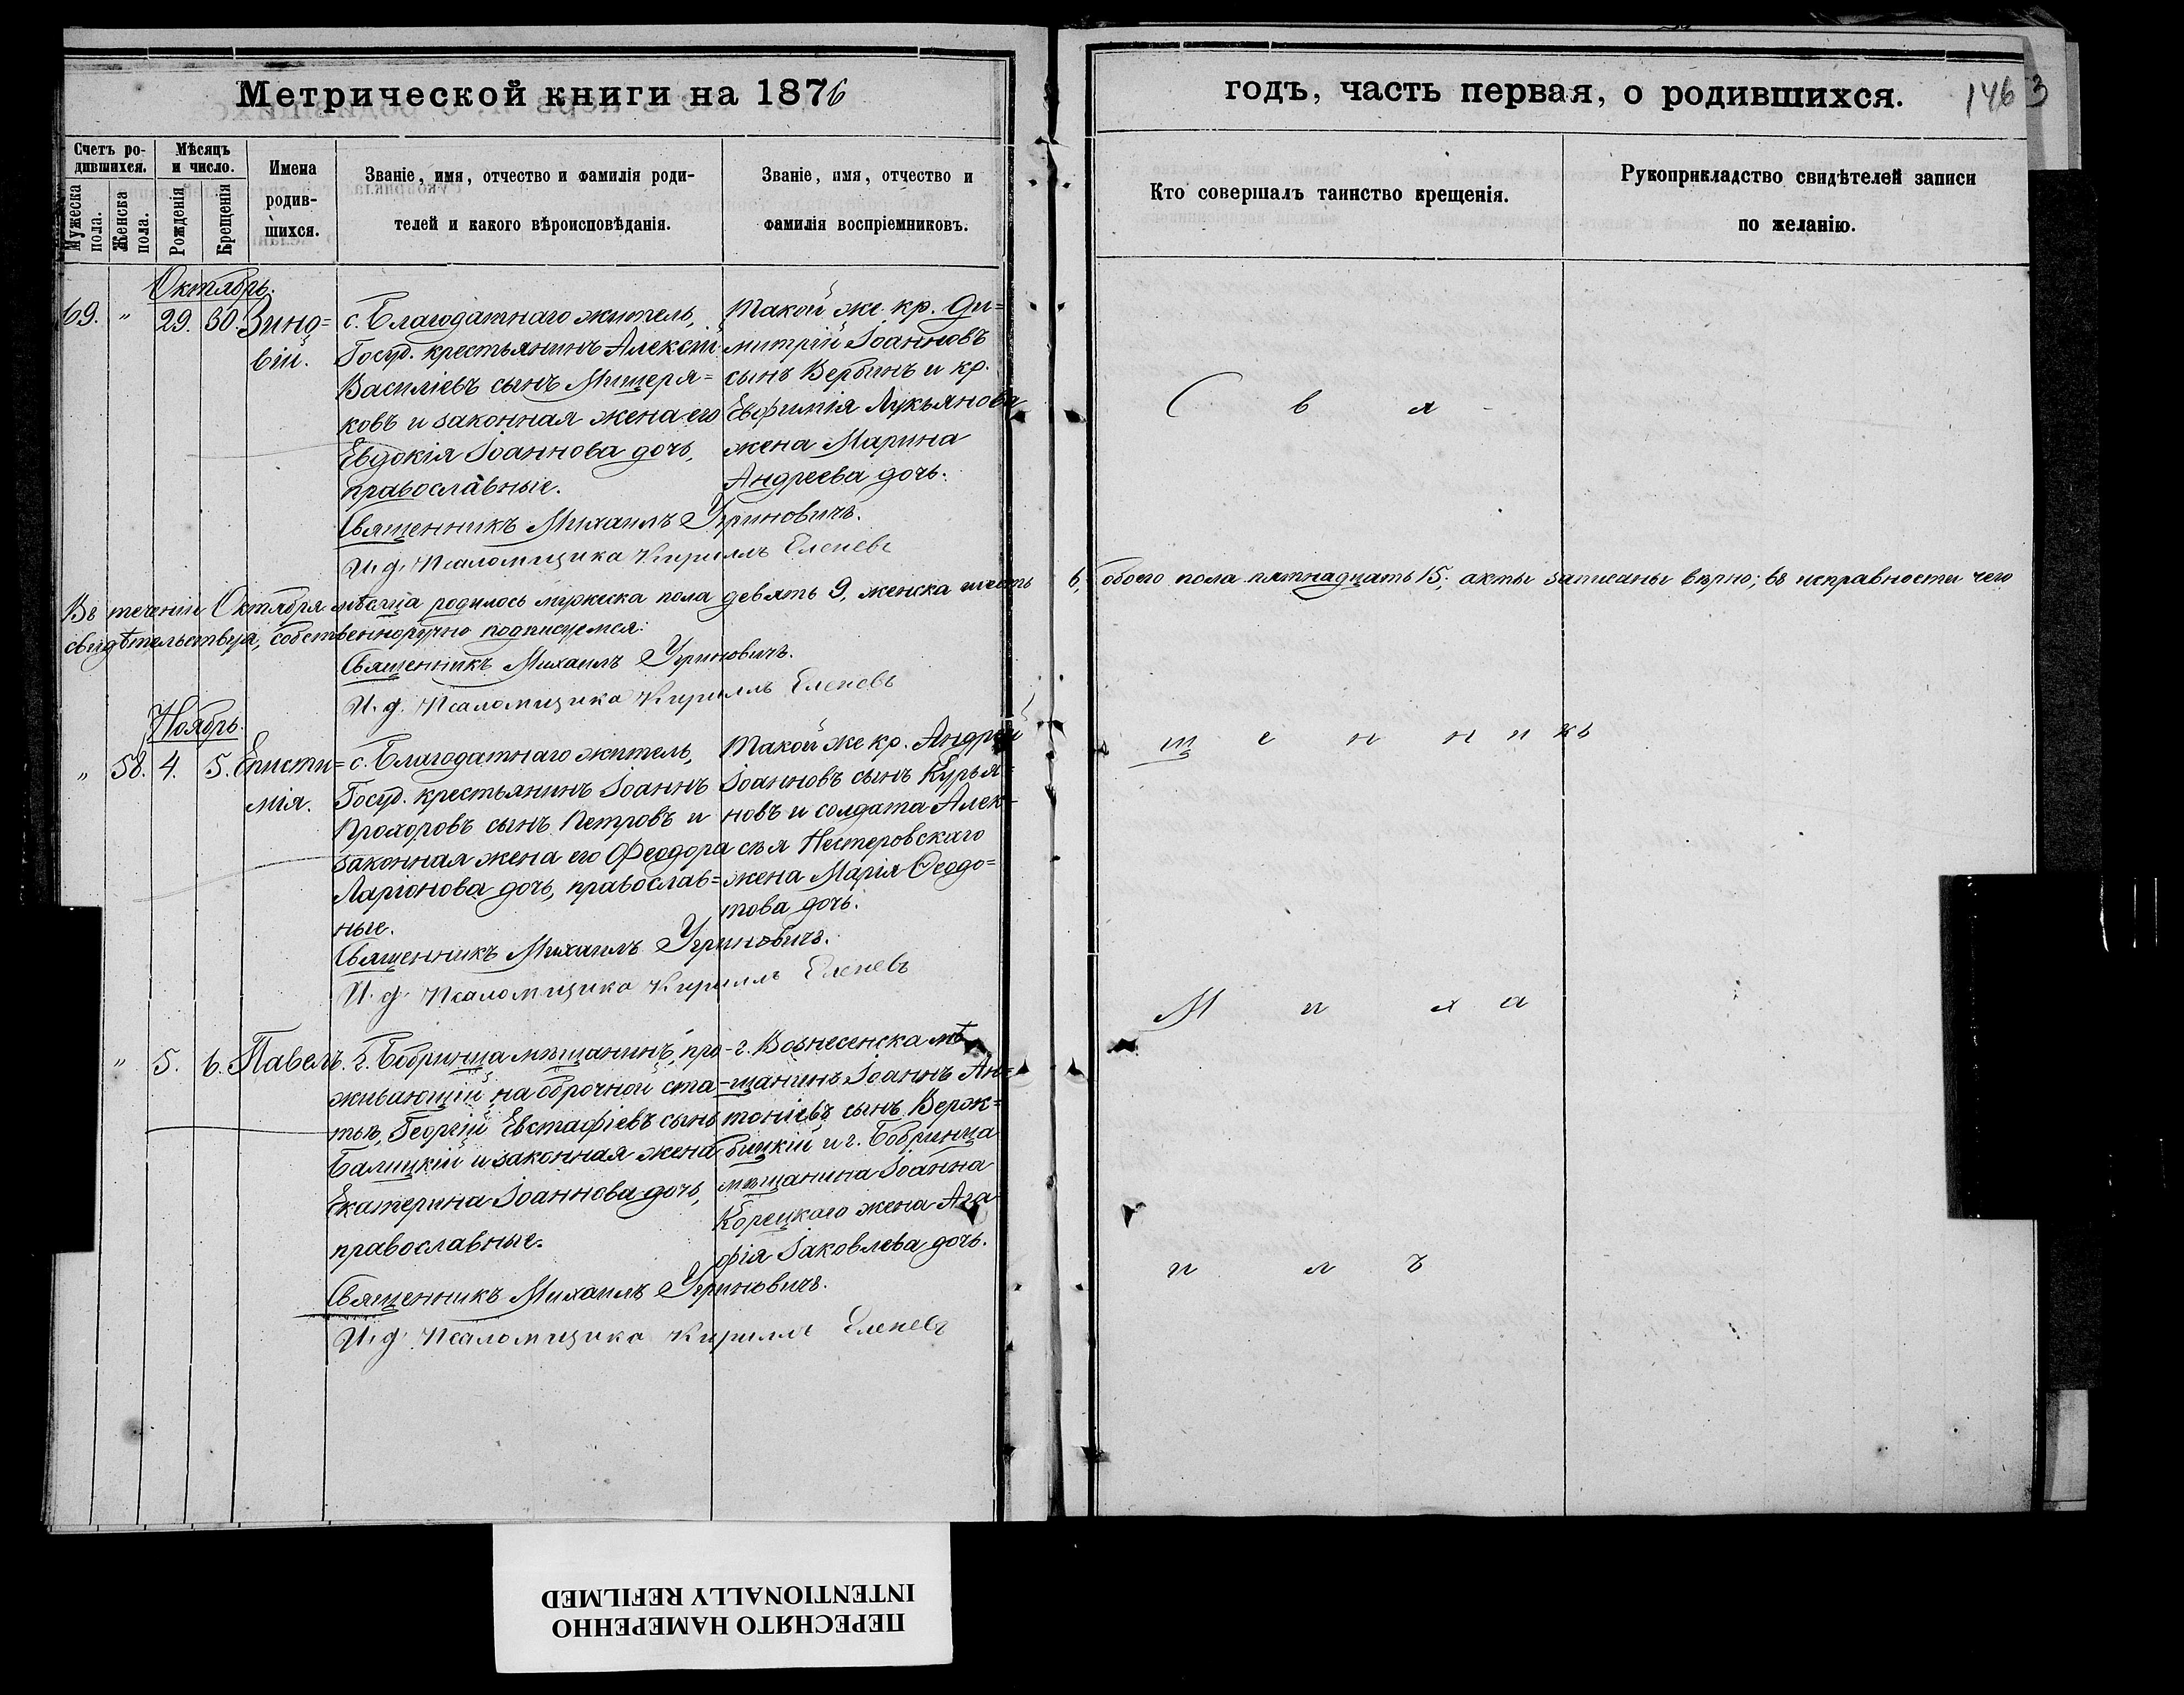 Метрической книги на 1876
годъ, часть первая, о родившихся.
146
3
Счетъ ро-
дившихся.
Мужеска пола.
Женска пола.
Мѣсяцъ
и число.
Рожденія
Крещенія
Имена
родив-
шихся.
Званіе, имя, отчество и фамилія роди-
телей и какого вѣроисповѣданія.
Званіе, имя, отчество и
фамилія воспріемниковъ.
Кто совершалъ таинство крещенія.
Рукоприкладство свидѣтелей записи
по желанію.
Октябрь.
69. " 29. 30. Зино=
вій.
с. Благодатнаго житель,
Госуд. крестьянинъ Алексій
Василіевъ сынъ Мишеря=
ковъ и законная жена его
Евдокія Іоаннова дочь,
православные.
Такой же кр. Ди=
митрій Іоанновъ
сынъ Вербинъ и кр.
Евфимія Лукьянова
жена Марина
Андреева дочь.
Священникъ Михаилъ Угриновичъ.
И. д. Псаломщика Кириллъ Еленевъ
Въ теченіи Октября мѣсяца родилось мужеска пола девять 9, женска шесть 6, обоего пола пятнадцать 15; акты записаны вѣрно; въ исправности чего
свидѣтельствуя, собственноручно подписуемся:
Священникъ Михаилъ Угриновичъ.
И. д. Псаломщика Кириллъ Еленевъ
Ноябрь.
" 58. 4. 5. Еписти=
мія.
с. Благодатнаго житель,
Госуд. крестьянинъ Іоаннъ
Прохоровъ сынъ Петровъ и
законная жена его Феодора
Ларіонова дочь, православ=
ные.
Такой же кр. Андрей
Іоанновъ сынъ Курья=
новъ и солдата Алек=
сѣя Нестеровскаго
жена Марія Ѳеодо=
това дочь.
Священникъ Михаилъ Угриновичъ.
И. д. Псаломщика Кириллъ Еленевъ
" 5. 6. Павелъ.
г. Бобринца мѣщанинъ, про-
живающій на оброчной ста-
тьѣ, Георгій Евстафіевъ сынъ
Балицкій и законная жена
Екатерина Іоаннова дочь,
православные.
г. Вознесенска мѣ
щанинъ Іоаннъ Ан=
тоніевъ сынъ Верж=
бицкій и г. Бобринца
мѣщанина Іоанна
Корецкаго жена Ага
фія Іаковлева дочь.
Священникъ Михаилъ Угриновичъ.
И. д. Псаломщика Кириллъ Еленевъ
С в я -
щ е н н и къ
М и х а
и л ъ
ПЕРЕСНЯТО НАМЕРЕННО
INTENTIONALLY REFILMED